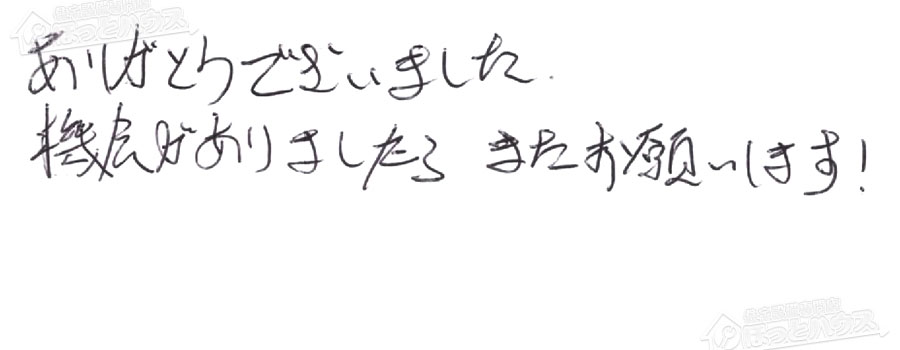 ありがとうございました
機会がありましたら またお願いします!
ほっとハウス
ほっとハウス